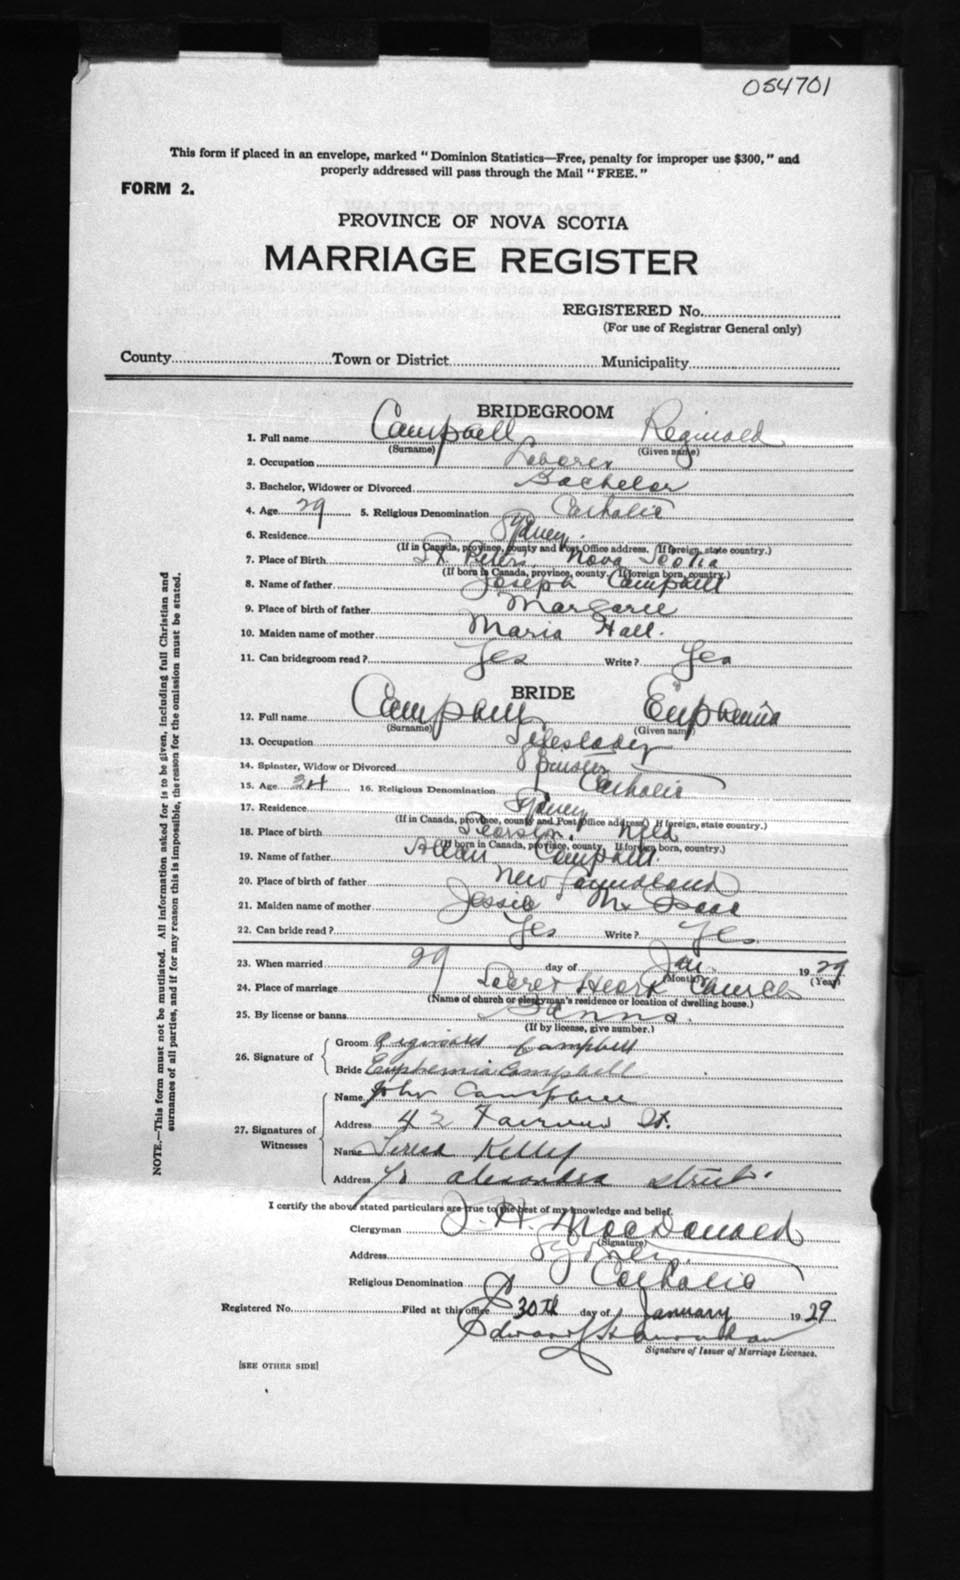 054701
This form if placed in an envelope, marked "Dominion Statistics—Free, penalty for improper use $300," and
properly addressed will pass through the Mail "FREE."
FORM 2.
PROVINCE OF NOVA SCOTIA
MARRIAGE REGISTER
REGISTERED No.
(For use of Registrar General only)
County Town or District Municipality
BRIDEGROOM
1. Full name Campbell Reginald
(Surname) (Given name)
2. Occupation Laborer
3. Bachelor, Widower or Divorced Bachelor
4. Age 29 5. Religious Denomination Catholic
6. Residence Sydney.
(If in Canada, province, county and Post Office address. If foreign, state country.)
7. Place of Birth St Peters. Nova Scotia
(If born in Canada, province, county. If foreign born, country.)
8. Name of father Joseph Campbell
9. Place of birth of father Margaree
10. Maiden name of mother Maria Hall.
11. Can bridegroom read? Yes Write? Yes
BRIDE
12. Full name Campbell Euphemia
(Surname) (Given name)
13. Occupation Saleslady
14. Spinster, Widow or Divorced Spinster
15. Age 24 16. Religious Denomination Catholic
17. Residence Sydney
(If in Canada, province, county and Post Office address. If foreign, state country.)
18. Place of birth Nfld
(If born in Canada, province, county. If foreign born, country.)
19. Name of father Allan Campbell.
20. Place of birth of father New Foundland
21. Maiden name of mother Jessie Mc Isaac
22. Can bride read? Yes Write? Yes.
23. When married 29 day of Jan. 19 29
(Month) (Year)
24. Place of marriage Sacred Heart Church
(Name of church or clergyman's residence or location of dwelling house.)
25. By license or banns Banns.
(If by license, give number.)
26. Signature of Groom Reginald Campbell
Bride Euphemia Campbell
27. Signatures of Witnesses Name John Campbell
Address 42 St.
Name Teresa Kelly
Address Alexandra Street.
I certify the above stated particulars are true to the best of my knowledge and belief.
Clergyman J. H. MacDonald
(Signature)
Address Sydney
Religious Denomination Catholic
Registered No. Filed at this office 30th day of January 19 29
Edward
Signature of Issuer of Marriage Licenses.
[SEE OTHER SIDE]
NOTE.—This form must not be mutilated. All information asked for is to be given, including full Christian and
surnames of all parties, and if for any reason this is impossible, the reason for the omission must be stated.